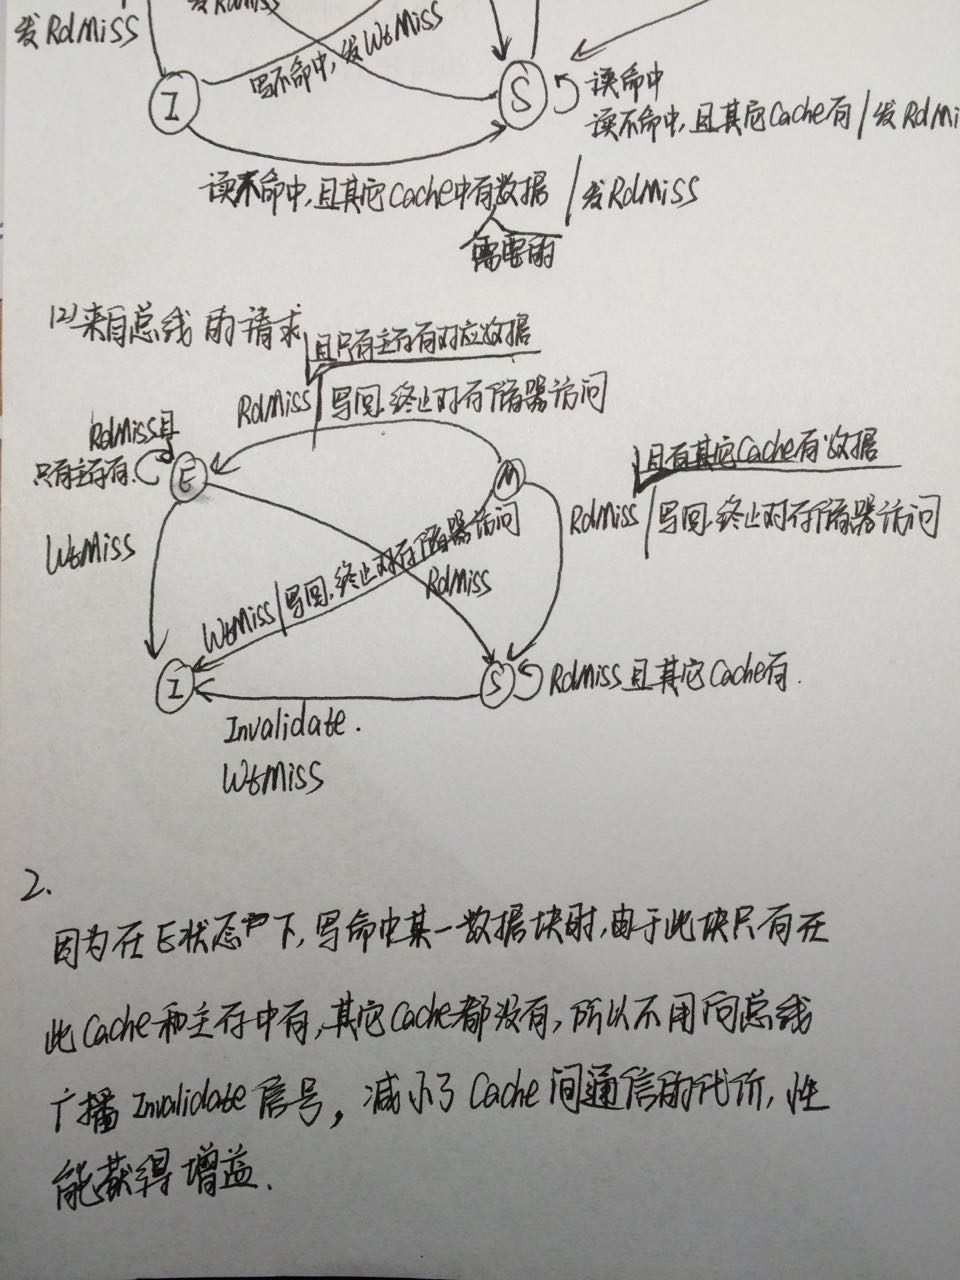 发RdMiss
发RdMiss
写不命中,发WtMiss
I
S
读命中
读不命中,且其它Cache有/发RdMi
读不命中,且其它Cache中有数据/发RdMiss
需要的
(2)来自总线的请求
且只有主存有对应数据
RdMiss/写回,终止对存储器访问
RdMiss且
只有主存有.
E
M
且有其它Cache有数据
RdMiss/写回,终止对存储器访问
WtMiss
WtMiss/写回,终止对存储器访问
RdMiss
I
S
RdMiss且其它Cache有.
Invalidate.
WtMiss
2.
因为在E状态下,写命中某一数据块时,由于此块只有在
此Cache和主存中有,其它Cache都没有,所以不用向总线
广播Invalidate信号,减小了Cache间通信的代价,性
能获得增益.